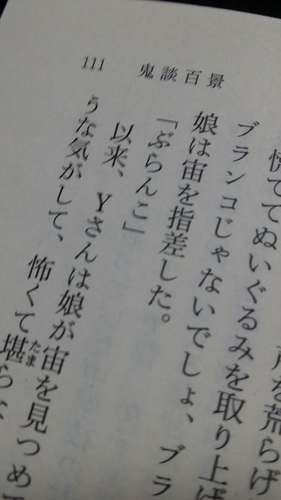 111　鬼談百景
声を荒らげ
慌ててぬいぐるみを取り上げ
ブランコじゃないでしょ、ブラ
娘は宙を指差した。
「ぶらんこ」
以来、Yさんは娘が宙を見つめ
うな気がして、怖くて堪らな
たま